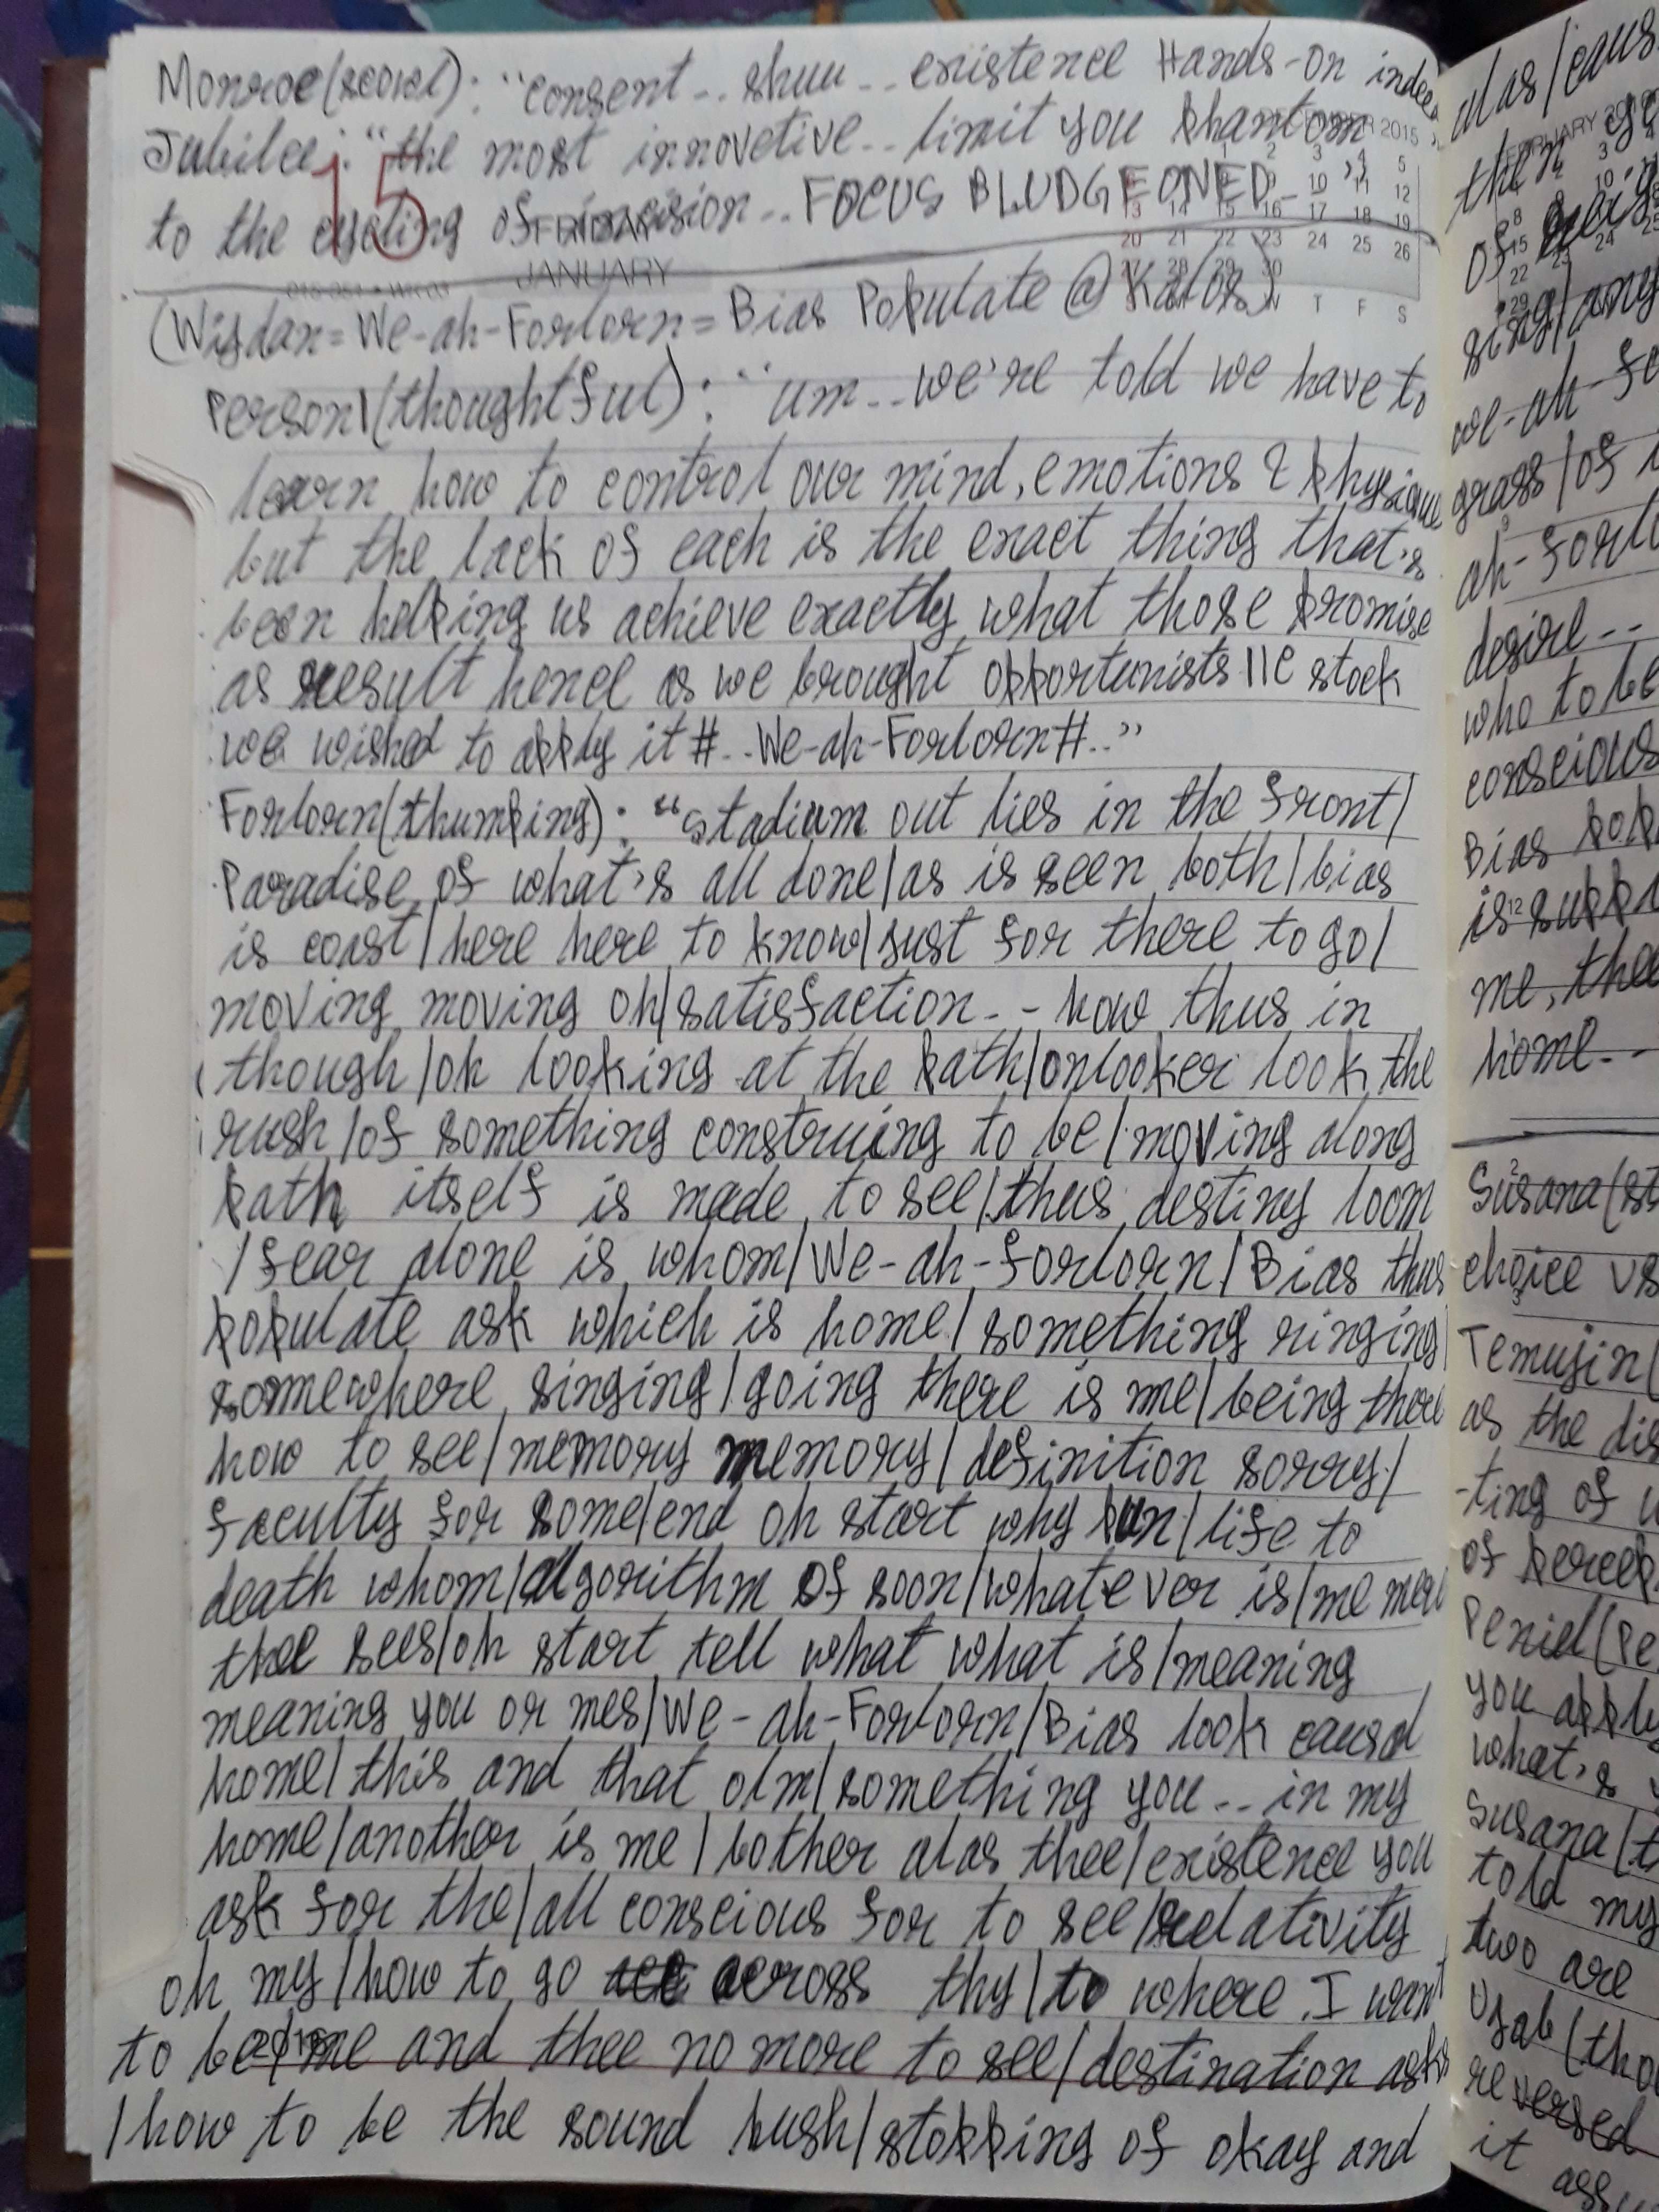 Monroe(scowl): "consent.. shuu.. existence Hands-On indeed
Jubilee: "the most innovetive.. limit you phantom
to the of incision.. FOCUS BLUDGEONED.."
15
FRIDAY
JANUARY
(Wisdax=We-ah-Forlorn=Bias Populate @ Kalos)
Person1(thoughtful): "um.. we're told we have to
learn how to control our mind, emotions & physique
but the lack of each is the exact thing that's
been helping us achieve exactly what those promise
as result hence as we brought opportunists lle stock
we wished to apply it #..We-ah-Forlorn#.."
Forlorn(thumping): "stadium out lies in the front/
Paradise of what's all done/as is seen both/bias
is coast/here here to know/just for there to go/
moving moving oh/satisfaction.. how thus in
though/oh looking at the path/onlooker look the
rush/of something construing to be/moving along
path itself is made to see/thus destiny loom
/fear alone is whom/We-ah-forlorn/Bias thus
populate ask which is home/something ringing/
somewhere singing/going there is me/being there
how to see/memory memory/definition sorry/
faculty for some/end oh start why pun/life to
death whom/algorithm of soon/whatever is/me mere
thee sees/oh start tell what what is/meaning
meaning you or mes/We-ah-Forlorn/Bias look causal
home/this and that olm/something you.. in my
home/another is me/bother alas thee/existence you
ask for the/all conscious for to see/relativity
oh my/how to go across thy/to where I want
to be/me and thee no more to see/destination asks
/how to be the sound push/stopping of okay and
alas/caus
then
of
sing/any
we-ah-fo
grass/of
ah-forlo
desire..
who to be
conscious
Bias pop
is suppr
me, thee
home..
Susana(st
choice vs
Temujin(
as the dis
-ting of
of percep
Peniel(Pe
you apply
what's
Susana(t
told my
two are
Ujab(tho
reversed
it ass